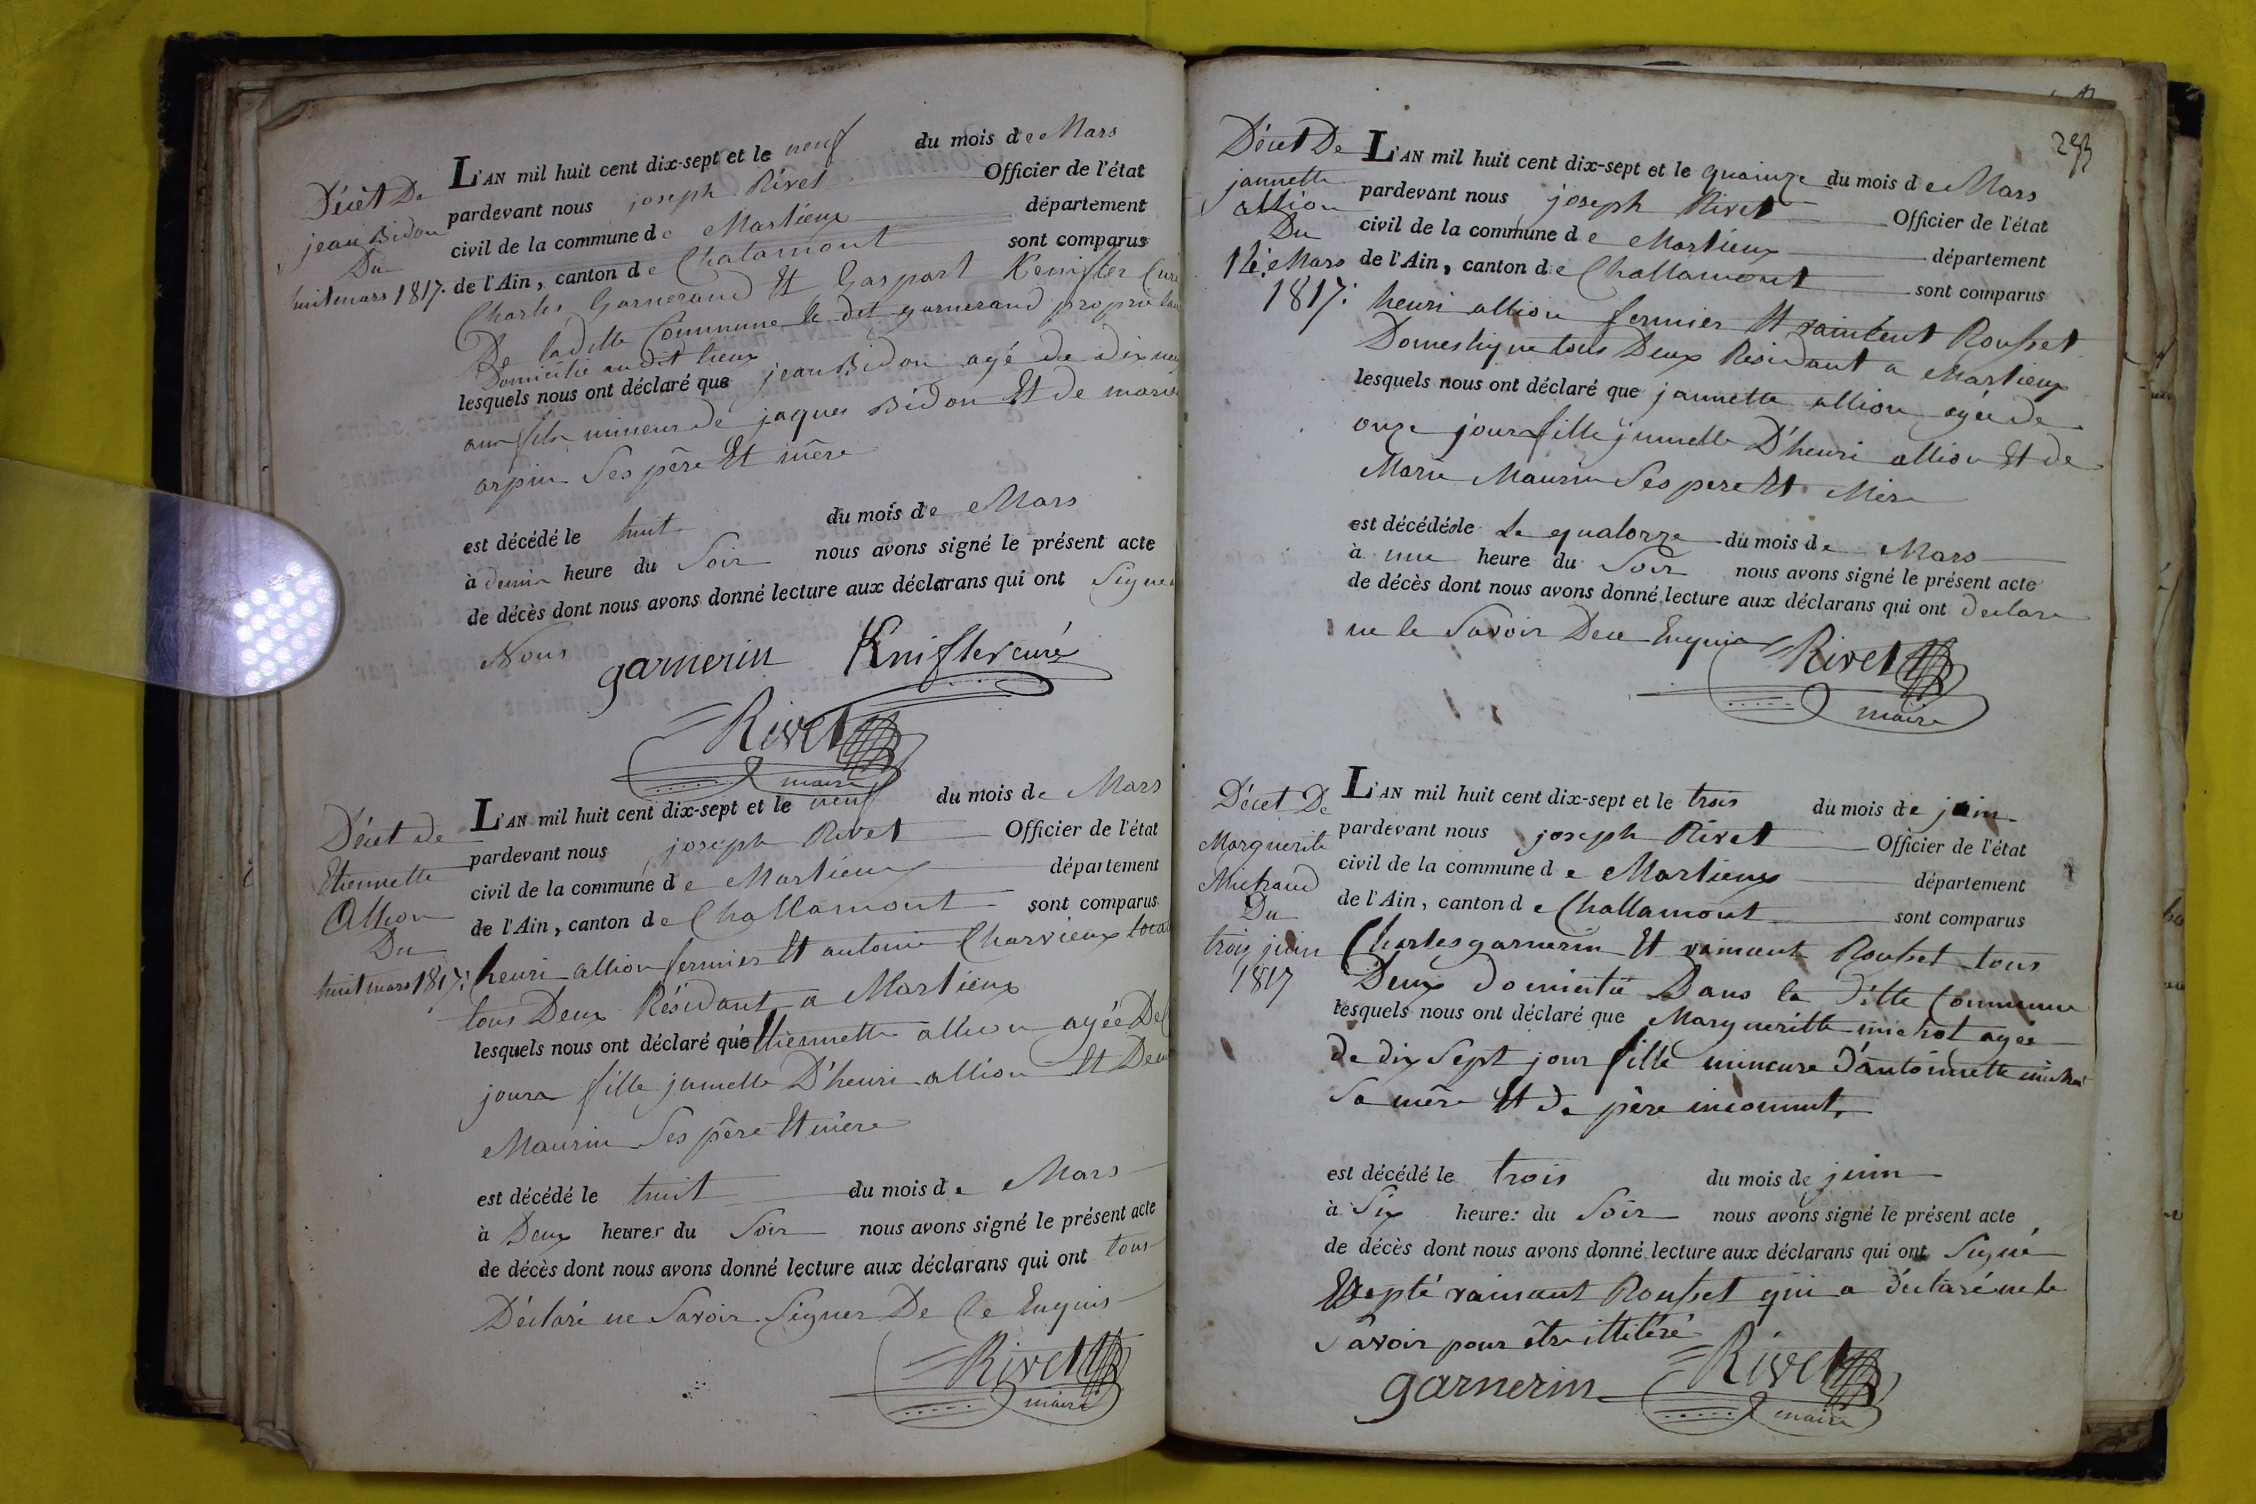 Décèt De
jean Bidon
Du
huit mars 1817.
L'AN mil huit cent dix-sept et le neuf du mois de Mars
pardevant nous joseph Rivet Officier de l'état
civil de la commune de Marlieux département
de l'Ain, canton de Chalamont sont comparus
Charles Garnerand Et Gaspart Kenifler Curé
De ladille Commune le dit garnerand propriétaire
Domicilié audit lieux
lesquels nous ont déclaré que jean Bidon agé de dix neuf
ans fils mineur de jaques Bidon Et de marie
arpin Ses père Et mère
est décédé le huit du mois de Mars
à demie heure du Soir nous avons signé le présent acte
de décès dont nous avons donné lecture aux déclarans qui ont Signé
Nous
garnerin Knifler curé
Rivet
maire
Décèt de
Etiennette
Allion
Du
huit mars 1817:
L'AN mil huit cent dix-sept et le neuf du mois de Mars
pardevant nous joseph Rivet Officier de l'état
civil de la commune de Marlieux département
de l'Ain, canton de Challamont sont comparus
henri allion fermier Et antoine Charvieux
tous Deux Résidant a Marlieux
lesquels nous ont déclaré que Etiennette allion agée De
jours fille jumelle D'henri allion Et De
Maurin Ses père Et mère
est décédé le huit du mois de Mars
à Deux heures du Soir nous avons signé le présent acte
de décès dont nous avons donné lecture aux déclarans qui ont tous
Déclaré ne Savoir Signer De Ce Enquis
Rivet
maire
293
Décet De
jannette
allion
Du
14: Mars
1817:
L'AN mil huit cent dix-sept et le quainze du mois de Mars
pardevant nous joseph Rivet Officier de l'état
civil de la commune de Marlieux département
de l'Ain, canton de Challamont sont comparus
henri allion fermier Et vainceut Rousset
Domestique tous Deux Résidant a Marlieux
lesquels nous ont déclaré que jannette allion agée de
onze jour fille jumelle D'henri allion Et de
Marie Maurin Ses pere Et Mère
est décédé le Le quatorze du mois de Mars
à une heure du Soir nous avons signé le présent acte
de décès dont nous avons donné lecture aux déclarans qui ont declaré
ne le Savoir De ce Enquis
Rivet
maire
Décet De
Marguerite
Michaud
Du
trois juin
1817
L'AN mil huit cent dix-sept et le trois du mois de juin
pardevant nous joseph Rivet Officier de l'état
civil de la commune de Marlieux département
de l'Ain, canton de Challamont sont comparus
Charles garnerin Et vainant Rousset tous
Deux domicilié Dans la ditte Commune
lesquels nous ont déclaré que Margueritte michot agée
de dix Sept jour fille mineure d'antoinette michot
Sa mère Et de père inconnut,
est décédé le trois du mois de juin
à Six heure: du Soir nous avons signé le présent acte
de décès dont nous avons donné lecture aux déclarans qui ont Signé
Exepté vainant Rousset qui a déclaré ne le
Savoir pour être illitéré
garnerin Rivet
maire